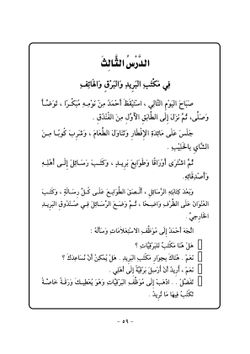 الدَّرْسُ الثَّالِثُ
فِي مَكْتَبِ الْبَرِيدِ وَالْبَرْقِ وَالْهَاتِفِ
صَبَاحَ الْيَوْمِ التَّالِي ، اسْتَيْقَظَ أَحْمَدُ مِنْ نَوْمِهِ مُبَكِّرًا ، تَوَضَّأَ
وَصَلَّى، ثُمَّ نَزَلَ إِلَى الطَّابَقِ الأَوَّلِ مِنَ الْفُنْدُقِ .
جَلَسَ عَلَى مَائِدَةِ الإِفْطَارِ وَتَنَاوَلَ الطَّعَامَ ، وَشَرِبَ كُوبًا مِنَ
الشَّايِ بِالْحَلِيبِ .
ثُمَّ اشْتَرَى أَوْرَاقًا وَطَوَابِعَ بَرِيدٍ ، وَكَتَبَ رَسَائِلَ إِلَى أَهْلِهِ
وَأَصْدِقَائِهِ.
وَبَعْدَ كِتَابَةِ الرَّسَائِلِ ، أَلْصَقَ الطَّوَابِعَ عَلَى كُلِّ رِسَالَةٍ ، وَكَتَبَ
الْعُنْوَانَ عَلَى الظَّرْفِ وَاضِحًا ، ثُمَّ وَضَعَ الرَّسَائِلَ فِي صُنْدُوقِ الْبَرِيدِ
الْخَارِجِيِّ .
اتَّجَهَ أَحْمَدُ إِلَى مُوَظَّفِ الاسْتِعْلَامَاتِ وَسَأَلَهُ :
هَلْ هُنَا مَكْتَبٌ لِلْبَرْقِيَّاتِ ؟
نَعَمْ . هُنَاكَ بِجِوَارِ مَكْتَبِ الْبَرِيدِ . هَلْ يُمْكِنُ أَنْ نُسَاعِدَكَ ؟
نَعَمْ ، أُرِيدُ أَنْ أُرْسِلَ بَرْقِيَّةً إِلَى أَهْلِي .
تَفَضَّلْ . . اذْهَبْ إِلَى مُوَظَّفِ الْبَرْقِيَّاتِ وَهُوَ يُعْطِيكَ وَرَقَةً خَاصَّةً
تَكْتُبُ فِيهَا مَا تُرِيدُ .
- ٥٩ -